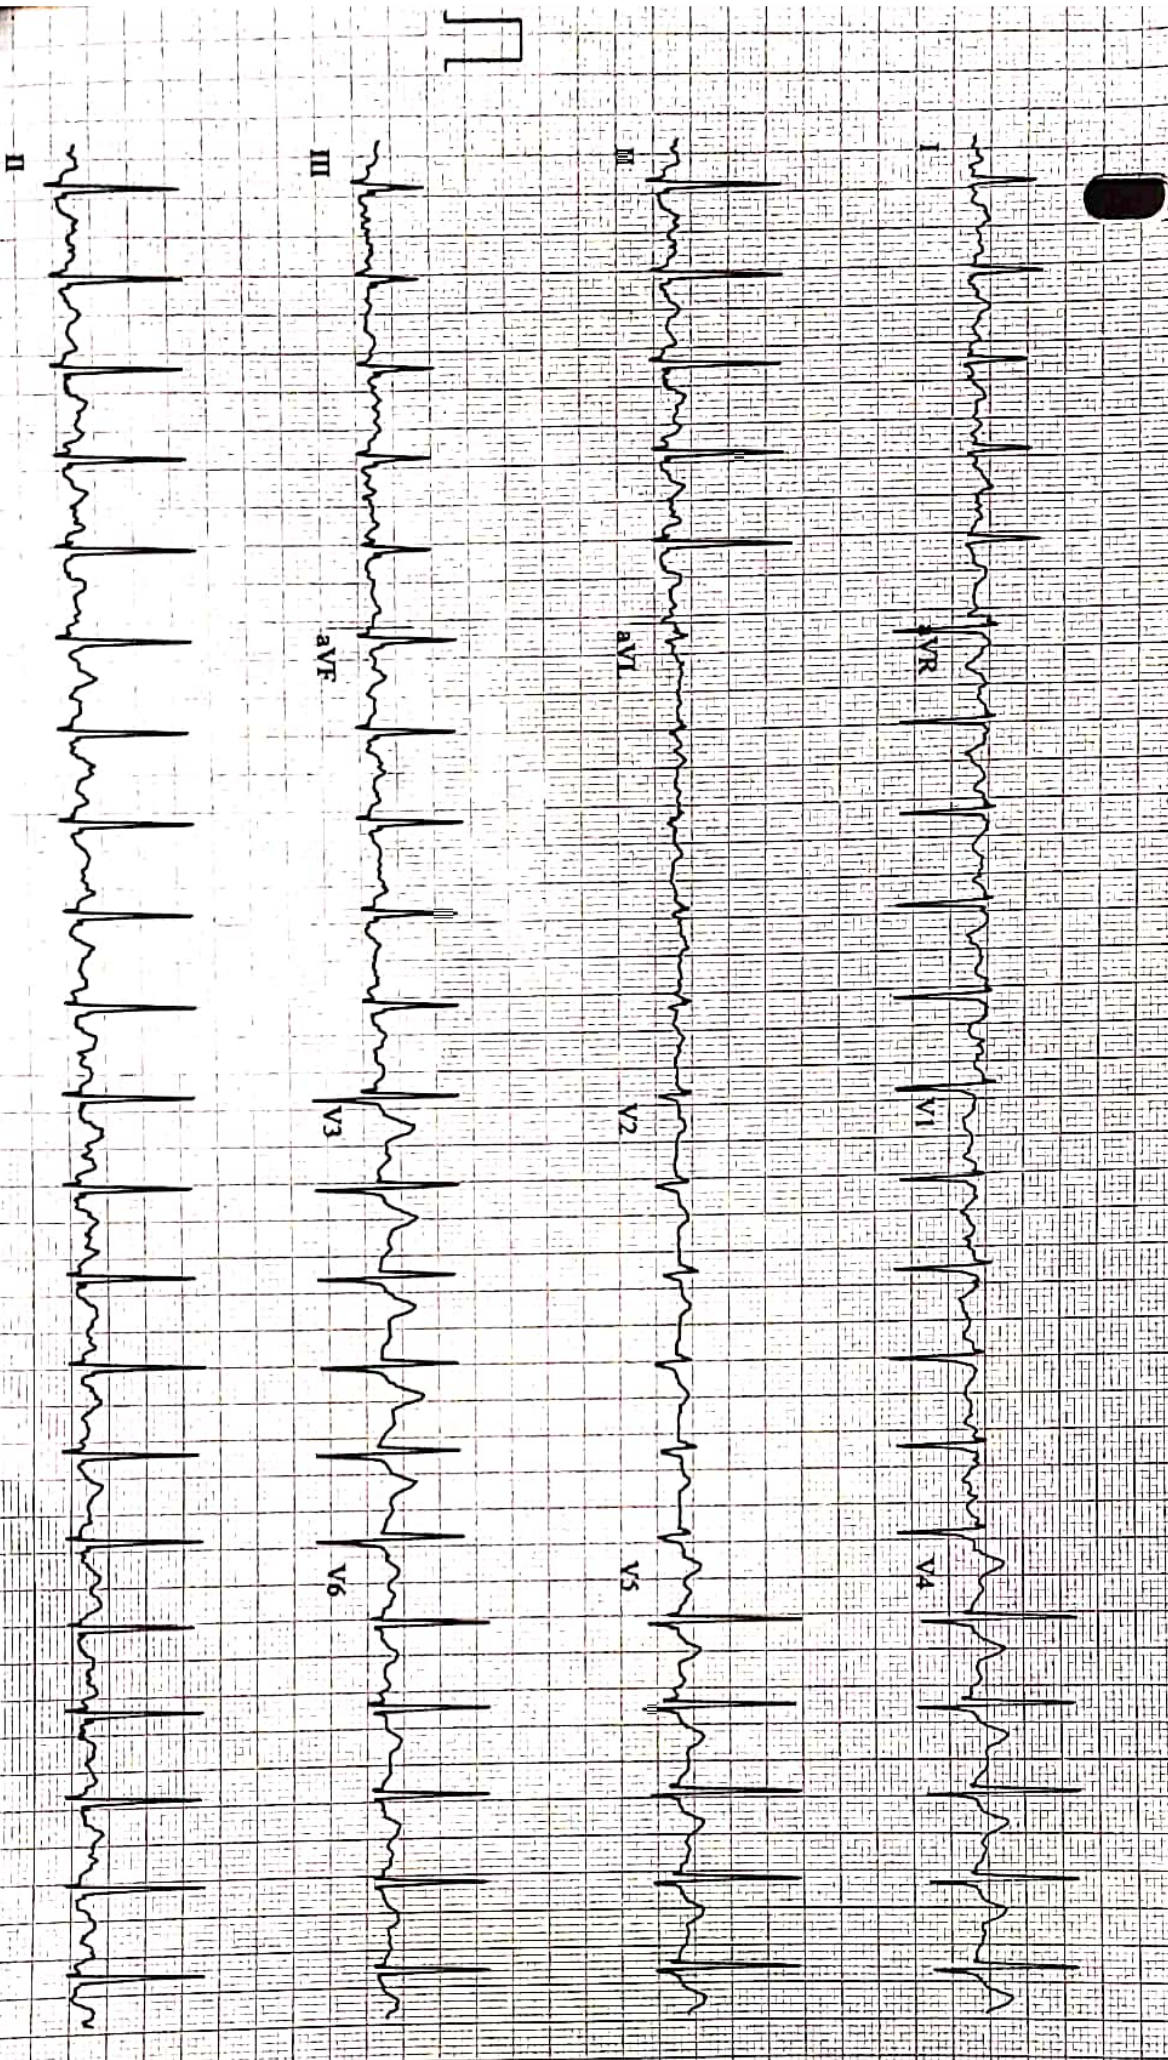 I aVR V1 V4
II aVL V2 V5
III aVF V3 V6
II